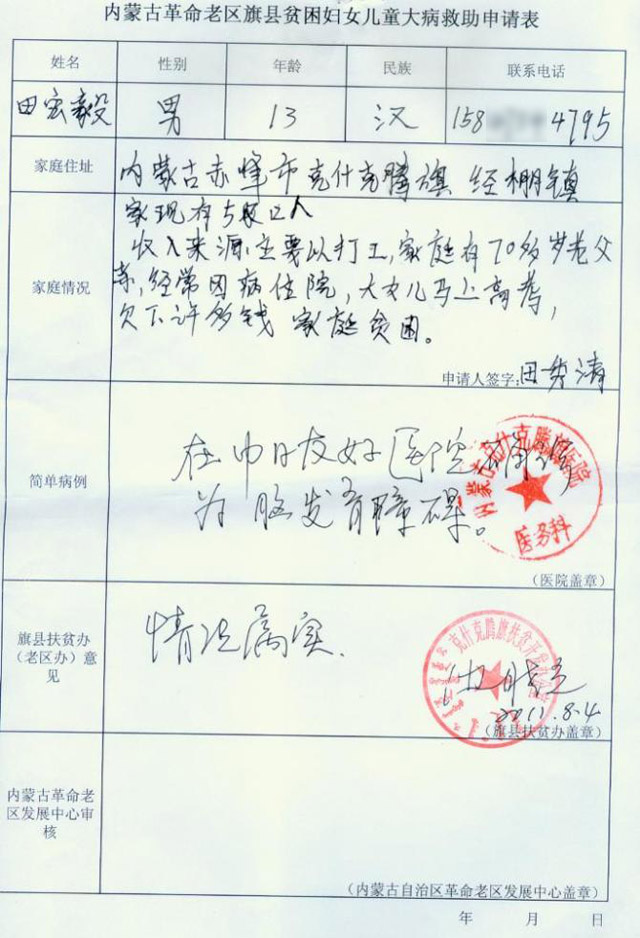 内蒙古革命老区旗县贫困妇女儿童大病救助申请表
姓名 性别 年龄 民族 联系电话
田宏毅 男 13 汉 158 4795
家庭住址 内蒙古赤峰市克什克腾旗 经棚镇
家庭情况
家现有5口人
收入来源主要以打工,家庭有70多岁老父
亲,经常因病住院,大女儿马上高考,
欠下许多钱 家庭贫困。
申请人签字:田秀清
简单病例
在中日友好医院
为脑发育障碍。
内蒙古克什克腾旗医院
医务科
(医院盖章)
旗县扶贫办
(老区办)意
见
情况属实.
克什克腾旗扶贫开
2011.8.4
(旗县扶贫办盖章)
内蒙古革命老
区发展中心审
核
(内蒙古自治区革命老区发展中心盖章)
年 月 日